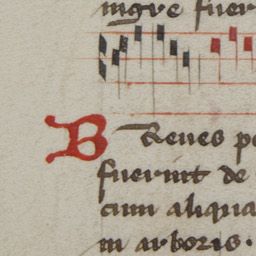 nigre fuer
B Reues po
fuerint de
cum aliqua
in arboris.